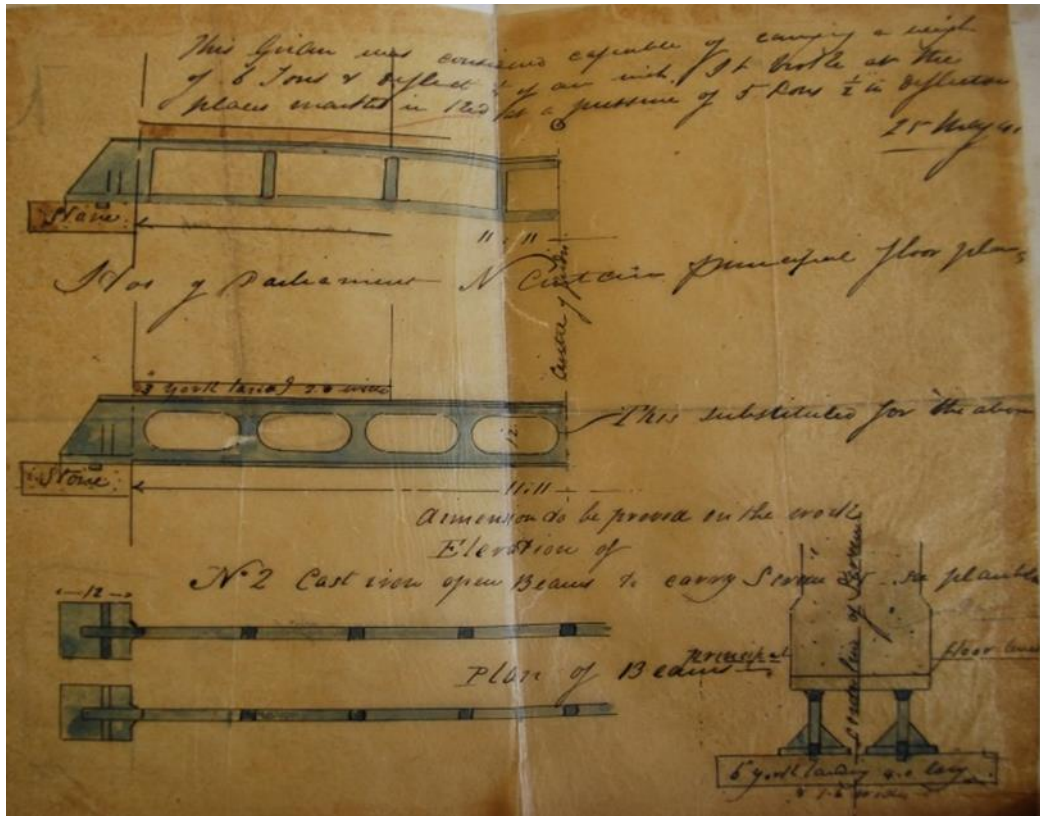 This Girder was considered capable of carrying a weight
of 6 Tons & deflect ¼ of an inch. It broke at the
places marked in Red at a pressure of 5 Tons ½ in deflection
25 May 41
Stone
11.11
Hos of Parliament N Curtain principal floor plan
Centre of
York land 2.6 wide
This substituted for the above
12
Stone
11.11
dimension to be proved on the work
Elevation of
No 2 Cast iron open Beams to carry Screen see plan
12
Plan of Beams
principal
floor
Centre line of Screen
6 York landing 4.0 long